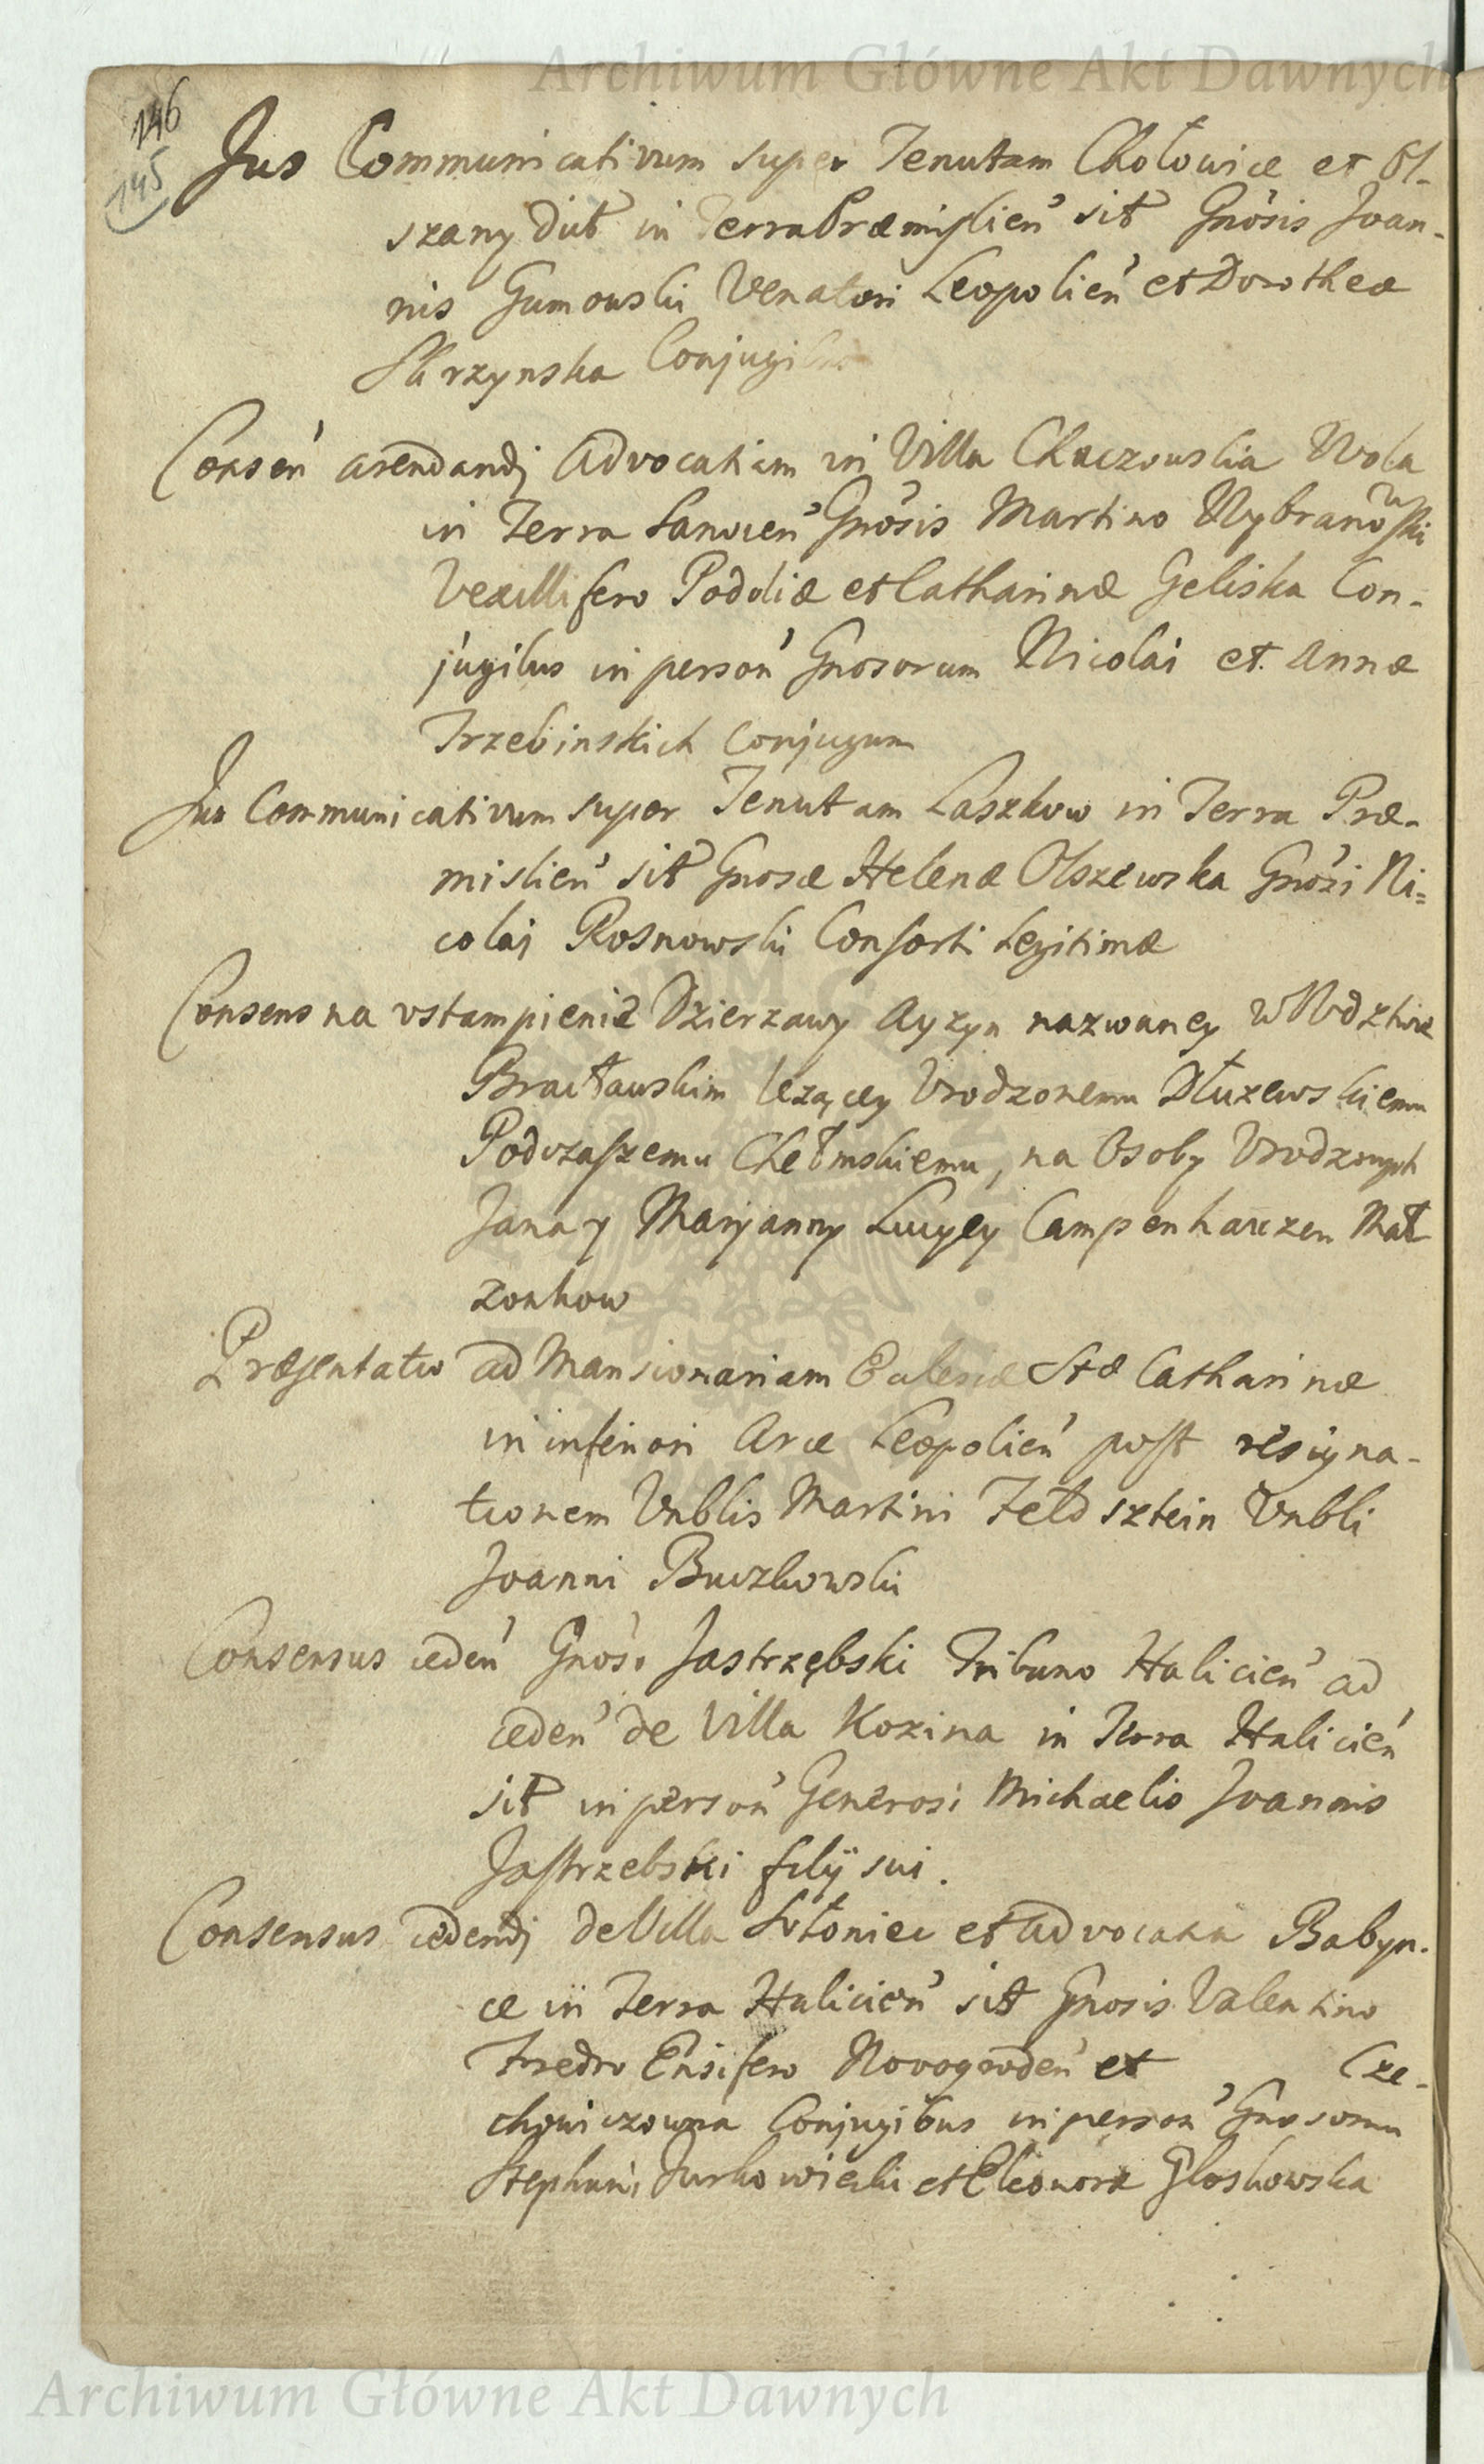 Archiwum Główne Akt Dawnych
146
145
Jus Communicativum super Tenutam Chołowice et Ol-
szany dict in Terra Præmislien sit Gnosis Joan-
nis Gumowski Venatori Leopolien et Dorothea
Skrzynska Conjugibus
Consen arendandj Advocatiam in Villa Chaczowska Wola
in Terra Sanocien Gnosis Martino Wybranowski
Vexillifero Podoliæ et Catharinæ Geliska Con-
jugibus in person Gnosorum Nicolai et Annæ
Trzebinskich Conjugum
Jus Communicativum super Tenutam Laszkow in Terra Præ-
mislien sit Gnosæ Helenæ Olszewska Gnosi Ni=
colaj Rosnowski Consorti Legitimæ
Consens na vstampienie Dzierzawy Ayzyn nazwaney w Wdztwie
Bracławskim lezącey Vrodzonemu Dłuzewskiemu
Podczaszemu Chełmskiemu, na Osoby Vrodzonych
Jana y Maryanny Lucyey Campenhauzen Mał
zonkow
Præsentatio ad Mansionariam Ecclesiæ Stæ Catharinæ
in inferiori Arce Leopolien post resigna-
tionem Vnblis Martini Feldsztein Vnbli
Joanni Buczkowski
Consensus ceden Gnoso Jastrzębski Tribuno Halicien ad
ceden de Villa Kozina in Terra Halicien
sit in person Generosi Michaelis Joannis
Jastrzebski filij sui.
Consensus cedendj de Villa Sołoniec et Advocatia Babyn-
ce in Terra Halicien sit Gnosis Valentino
Fredro Ensifero Novogroden et Cze-
chowiczowna Conjugibus in person Gnosorum
Stephani Turkowiecki et Eleonoræ Głoskowska
Archiwum Główne Akt Dawnych